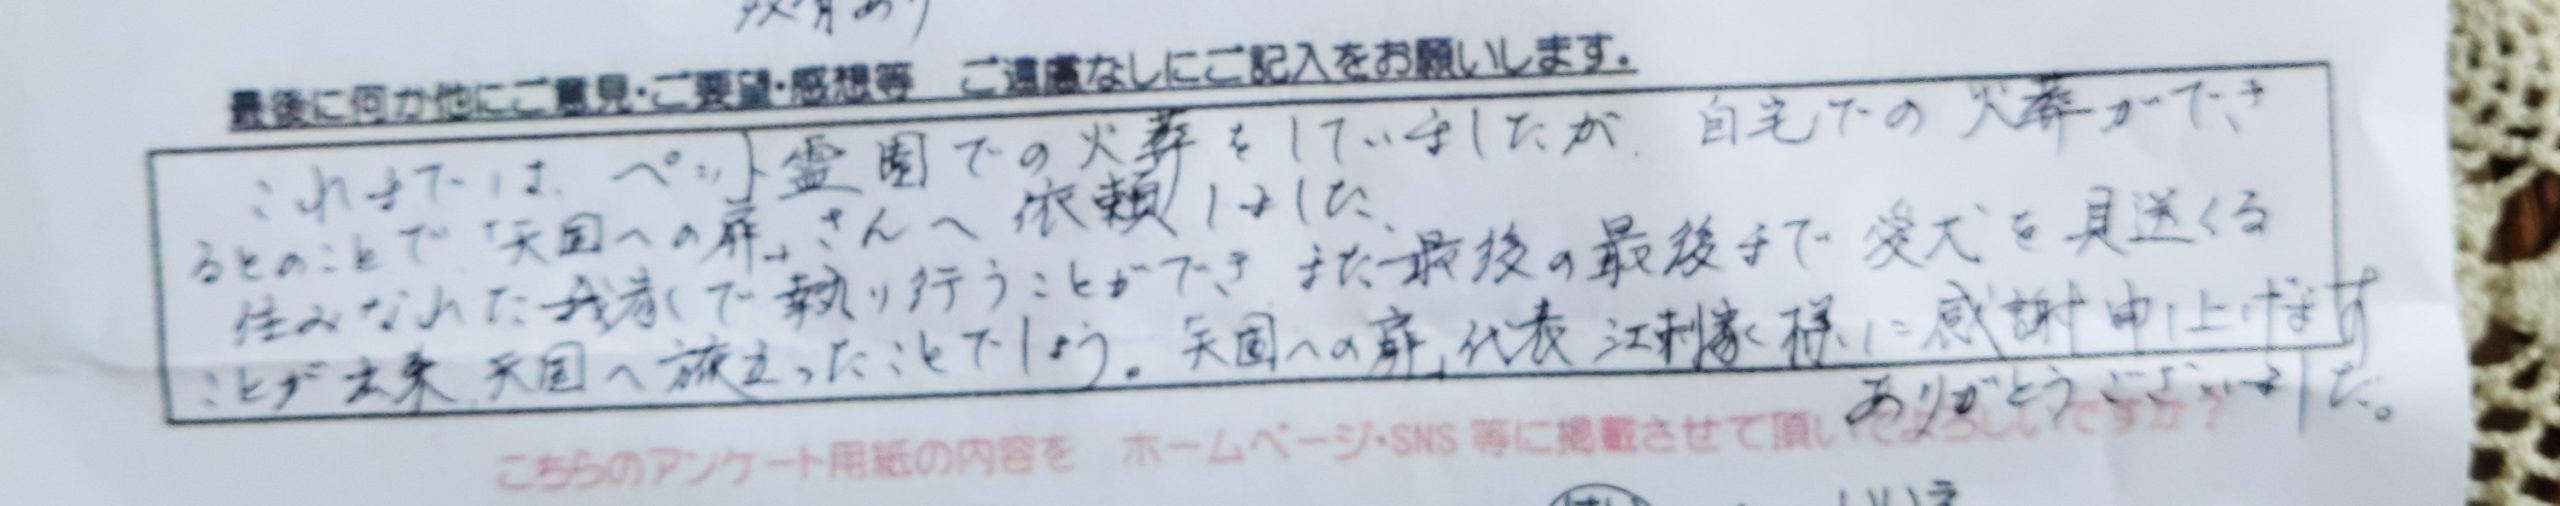 最後に何か他にご意見・ご要望・感想等　ご遠慮なしにご記入をお願いします。
これまでは、ペット霊園での火葬をしていましたが、自宅での火葬ができ
るとのことで「天国への扉」さんへ依頼しました。
住みなれた我家で執り行うことができ また最後の最後まで愛犬を見送くる
ことが出来、天国へ旅立ったことでしょう。天国への扉、代表 江刺家様に感謝申し上げます
ありがとうございました。
こちらのアンケート用紙の内容を　ホームページ・SNS等に掲載させて頂いてよろしいですか？
はい ・ いいえ